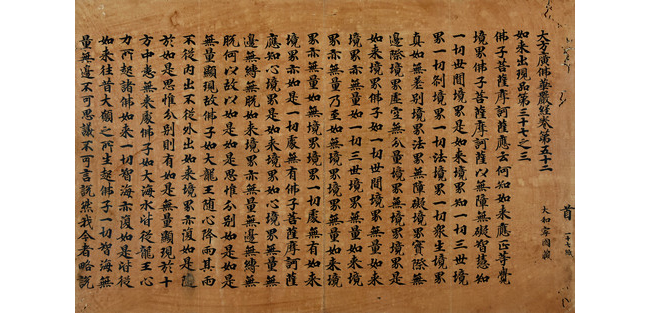 首
大和寧國藏
大方廣佛華嚴經卷第五十二
如來出現品第三十七之三
佛子菩薩摩訶薩應云何知如來應正等覺
境界佛子菩薩摩訶薩以無障無礙智慧知
一切世間境界是如來境界知一切三世境
界一切剎境界一切法境界一切衆生境界
真如無差別境界法界無障礙境界實際無
邊際境界虛空無分量境界無境界境界是
如來境界佛子如一切世間境界無量如來
境界亦無量如一切三世境界無量如來境
界亦無量乃至如無境界境界無量如來境
界亦無量如無境界境界一切處無有如來
境界亦如是一切處無有佛子菩薩摩訶薩
應知心境界是如來境界如心境界無量無
邊無縛無脫如來境界亦無量無邊無縛無
脫何以故以如是如是思惟分別如是如是
無量顯現故佛子如大龍王隨心降雨其雨
不從內出不從外出如來境界亦復如是隨
於如是思惟分別則有如是無量顯現於十
方中悉無來處佛子如大海水皆從龍王心
力所起諸佛如來一切智海亦復如是皆從
如來往昔大願之所生起佛子一切智海無
量無邊不可思議不可言說然我今者略說